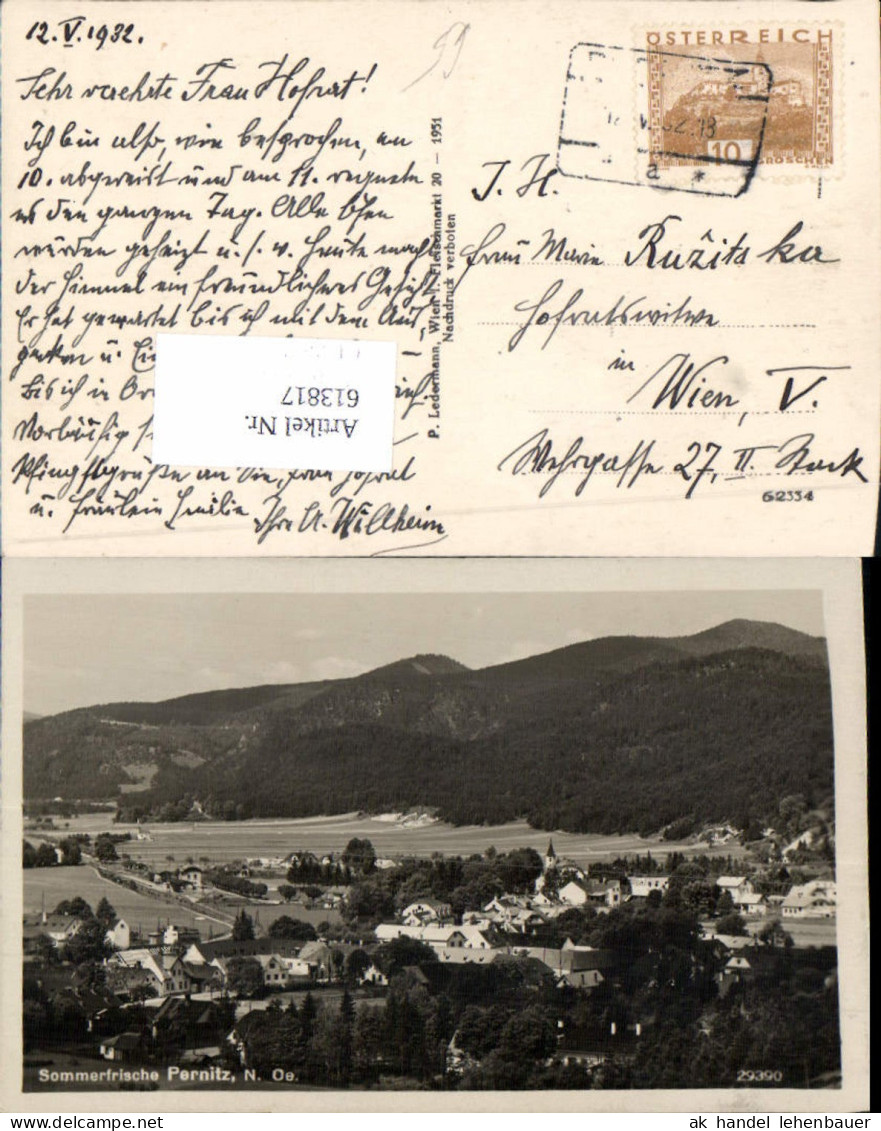 12. V. 1932.
Sehr verehrte Frau Hofrat!
Ich bin also, wie besprochen, am
10. abgereist und am 11. regnete
es den ganzen Tag. Alle Öfen
wurden geheizt u. s. w. Heute macht
der Himmel ein freundlicheres Gesicht.
Er hat gewartet bis ich mit dem Aus-
packen u.
bis ich in
Vorläufig
Pfingstgrüße an Sie, Frau Hofrat
u. Fräulein Emilie Ihre A. Willheim
59
P. Ledermann, Wien I. Fleischmarkt 20 — 1931
Nachdruck verboten
ÖSTERREICH
10
GROSCHEN
I. H.
Frau Marie Ružitska
Hofratswitwe
in
Wien, V.
Wehrgasse 27, II. Stock
62334
Artikel Nr.
613817
Sommerfrische Pernitz, N. Oe.
29390
ak handel lehenbauer